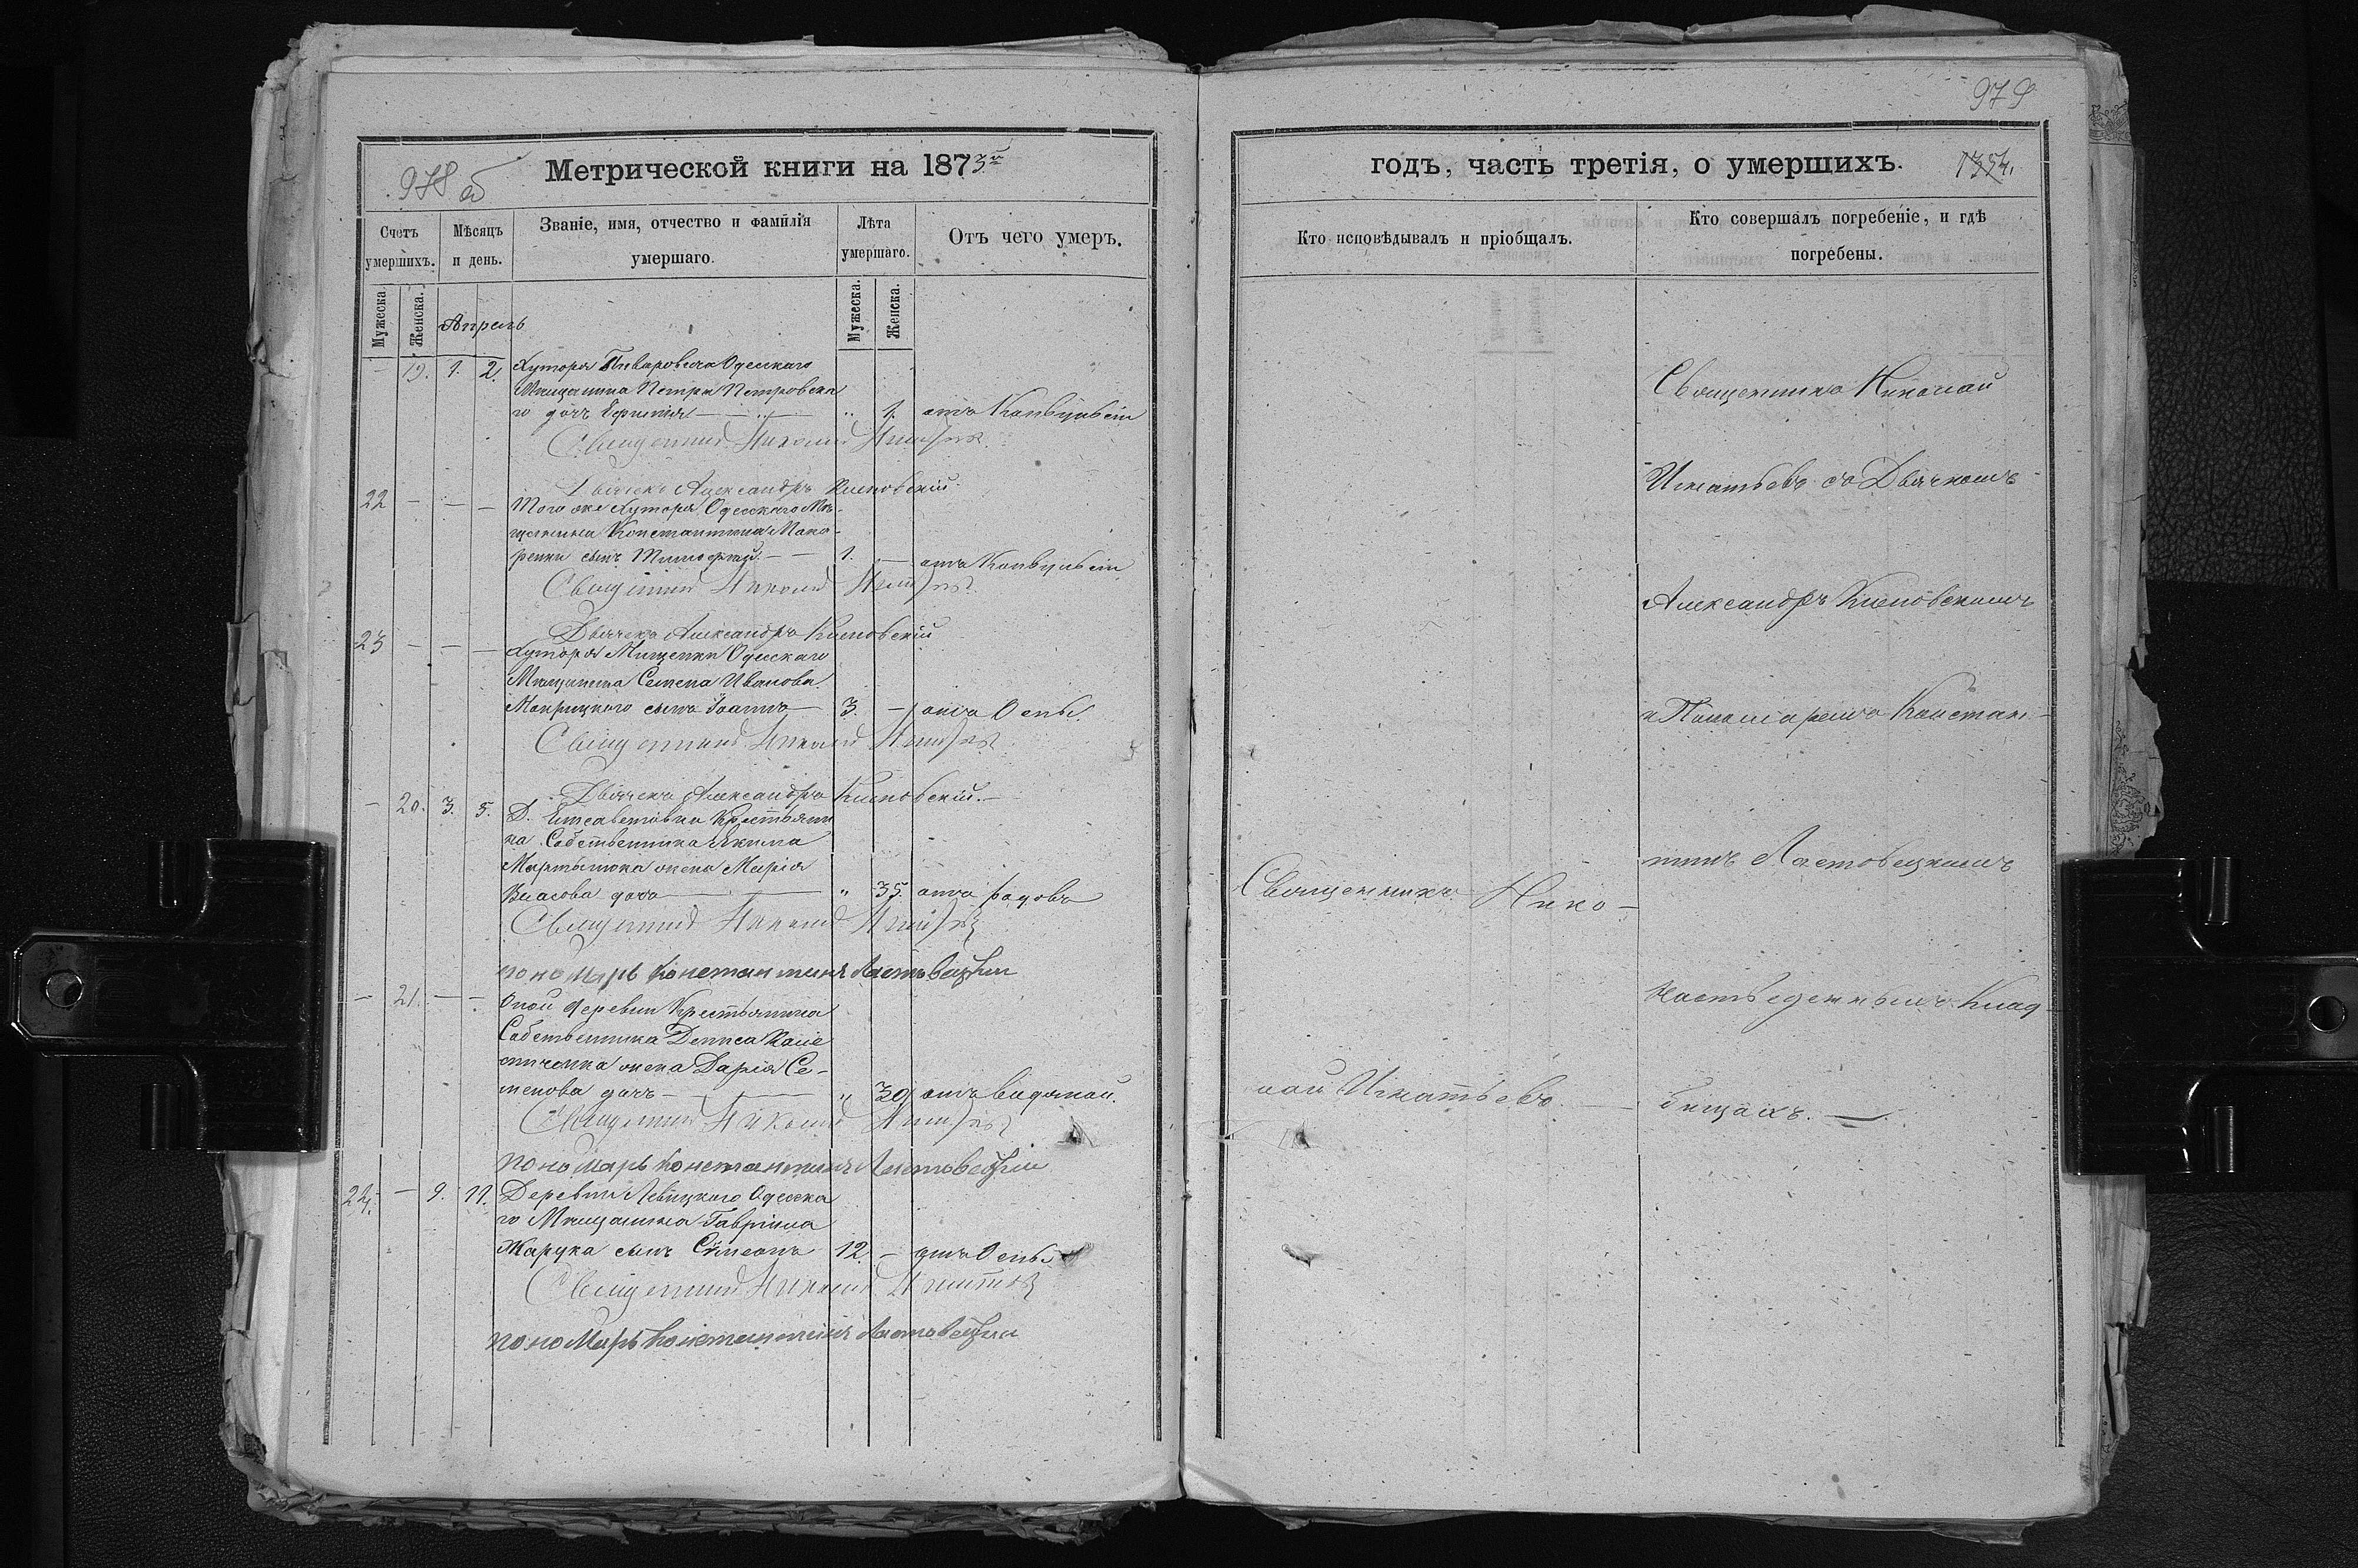 978 об
Метрической книги на 1873й
Счетъ умершихъ.
Мѣсяцъ и день.
Званіе, имя, отчество и фамилія умершаго.
Лѣта умершаго.
Отъ чего умеръ.
Мужеска.
Женска.
Мужеска.
Женска.
Апрель
– 19. 1. 2. Хутора Одесскаго
Мещанина Петра Петровска
го дочь „ 1. отъ Конвульсіи
Священникъ Николай Игнатьевъ
Дьячекъ Александръ Климовскій.
22 – – – Того же Хутора Одесскаго Мѣ-
щанина Константина Мака-
ренки сынъ Тимофей. – – 1. – отъ Конвульсіи
Священникъ Николай Игнатьевъ
Дьячекъ Александръ Климовскій
23 – – – Хутора Мищенки Одесскаго
Мещанина Семена Иванова
Мокрицкаго сынъ Іоаннъ 3. – отъ Оспы.
Священникъ Николай Игнатьевъ
Дьячекъ Александръ Климовскій. –
– 20. 3. 5. Д. Елисаветовки Крестьяни
на Собственника Якима
Мартынюка жена Марія
Власова дочь „ 35. отъ родовъ
Священникъ Николай Игнатьевъ
пономарь Константинъ Ластовецкій
– 21. – – Оной деревни Крестьянина
Собственника Дениса
жена Дарія Се-
менова дочь – „ 39 отъ
Священникъ Николай Игнатьевъ
пономарь Константинъ Ластовецкій
24. – 9. 11. Деревни Левицкаго Одесска
го Мещанина Гавріила
Жарука сынъ Симеонъ 12. – отъ Оспы
Священникъ Николай Игнатьевъ
пономарь Константинъ Ластовецкій
979
годъ, часть третія, о умершихъ.
1354.
Кто исповѣдывалъ и пріобщалъ.
Кто совершалъ погребеніе, и гдѣ погребены.
Священникъ Нико-
лай Игнатьевъ. –
Священникъ Николай
Игнатьевъ съ Дьячкомъ
Александръ Климовскимъ
и Пономаремъ Констан-
тинъ Ластовецкимъ
Клад-
бищахъ. –